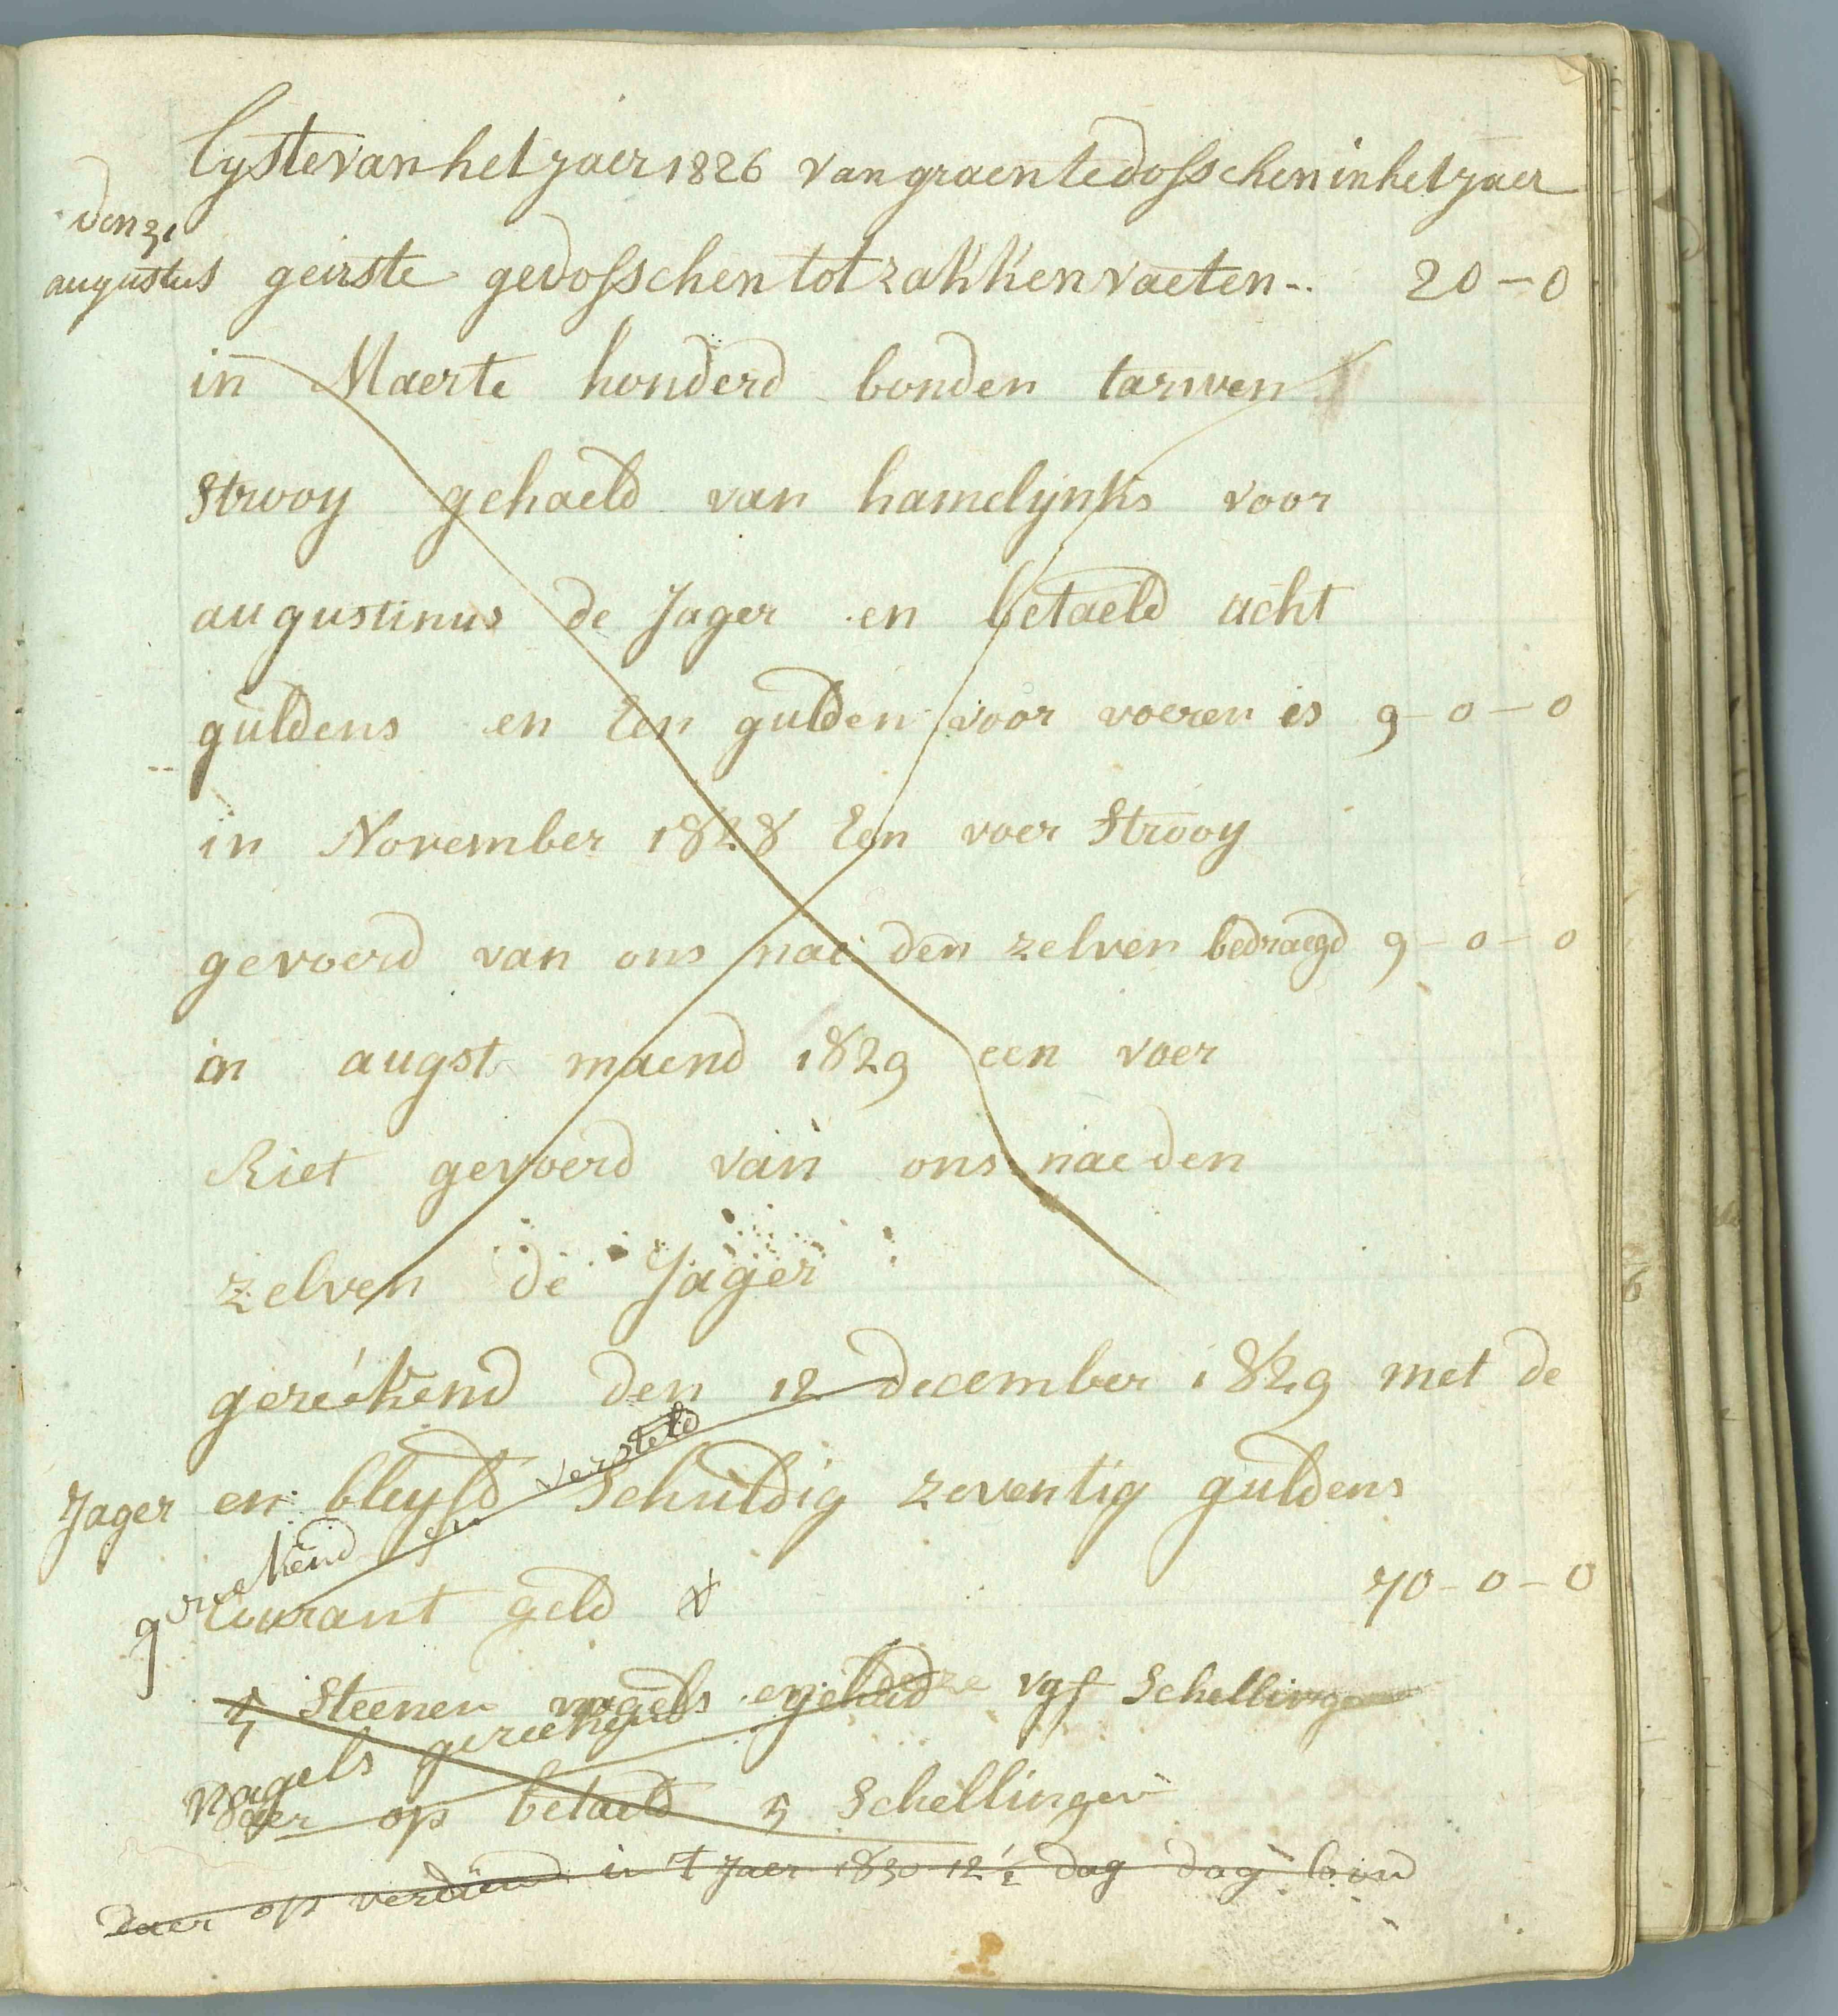 lyste van het jaer 1826 van graen te dosschen in het jaer
den 31
augustus geirste gedosschen tot zakken vaeten -. 20 - 0
in Maerte honderd bonden tarwen
strooy gehaeld van hamelynks voor
augustinus de Jager en betaeld acht
guldens en Een gulden voor voeren is 9 - 0 - 0
in November 1828 Een voer strooy
gevoerd van ons nae den zelven bedraegd 9 - 0 - 0
in augst maend 1829 een voer
Riet gevoerd van ons nae den
zelven de Jager
gereékend den 12 december 1829 met de
Jager en blyfd Schuldig zeventig guldens
gerekend en versteld
Courant geld 70 - 0 - 0
5 Steenen vyf Schellingen
nagels gereekend
daer op betaeld 5 Schellingen
daer op verdiend in 't Jaer 1830 12 1/2 dag dag loon